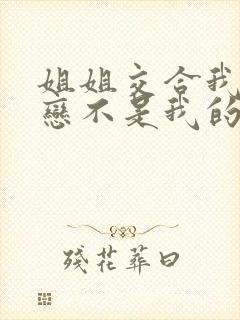 姐姐交合我
戀不是我的
殘花葬曰